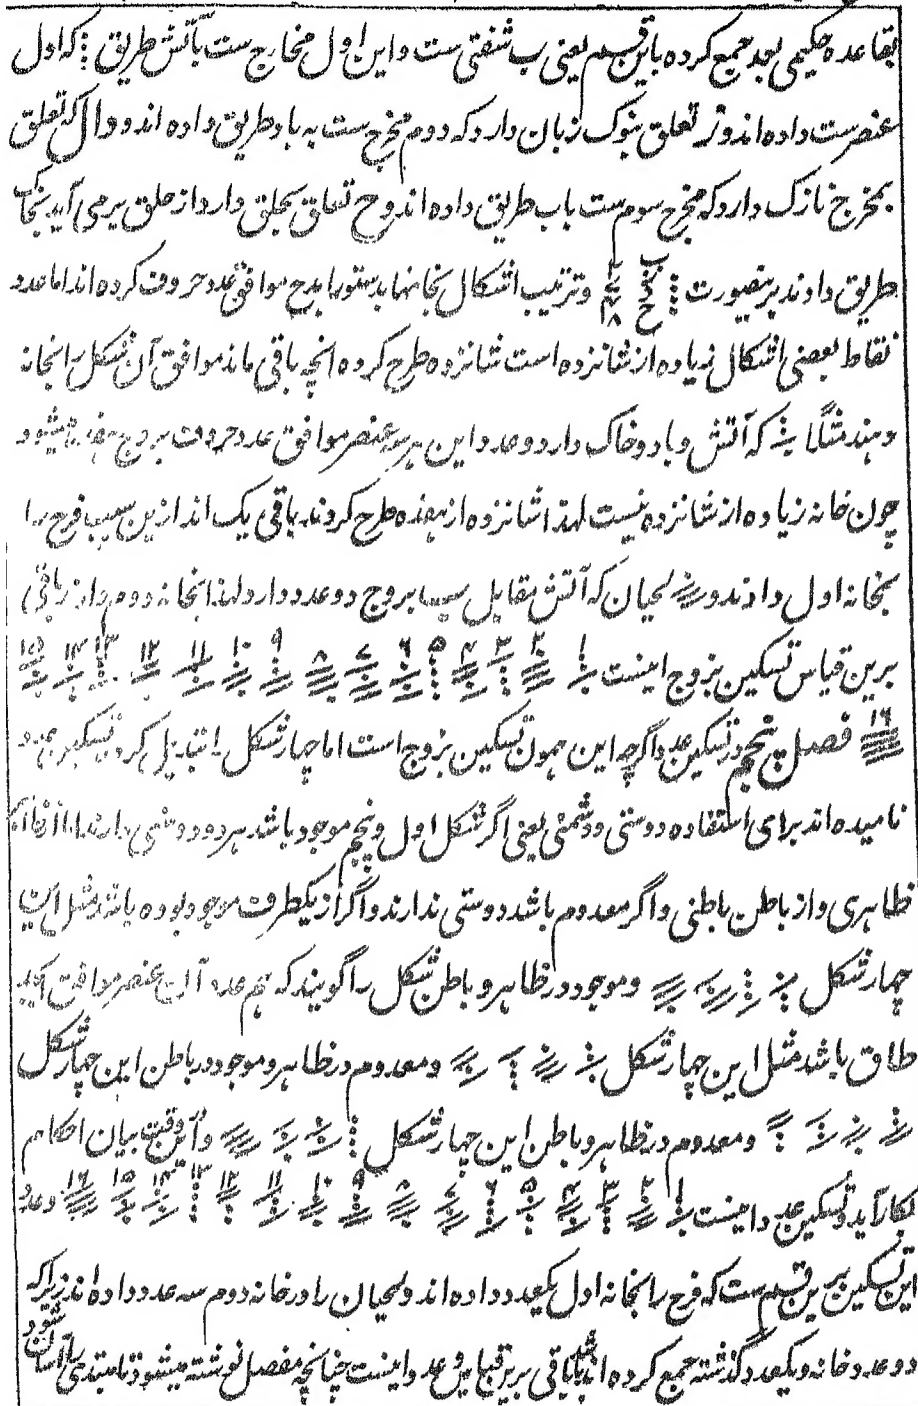 بقاعده حکیمی بعد جمع کرده باین قسم یعنی ب شفتی ست و این اول مخارج ست بآتش طریق که اول
عنصرست داده اند و ز تعلق بنوک زبان دارد که دوم مخرج ست به باد طریق داده اند و دال که تعلق
بمخرج نازک دارد که مخرج سوم ست باب طریق داده اند و ح تعلق بحلق دارد از حلق برمی آید بخاک
طریق دادند برینصورت ب ۲ ز ۷ د ۴ ح ۸ و ترتیب اشکال بخانها بدستور ابدح موافق عدد حروف کرده اند اما عدد
نقاط بعضی اشکال زیاده از شانزده است شانزده طرح کرده انچه باقی ماند موافق آن شکل را بخانه
دهند مثلًا که آتش و باد و خاک دارد و عدد این هر سه عنصر موافق عدد حروف بزدح هفده میشود
چون خانه زیاده از شانزده نیست لهذا شانزده از هفده طرح کردند باقی یک ماند ازین سبب فرح را
بخانه اول دادند و لحیان که آتش مقابل بزدح دو عدد دارد لهذا بخانه دوم داد باقی
برین قیاس تسکین بزدح اینست ۱ ۲ ۳ ۴ ۵ ۶ ۷ ۸ ۹ ۱۰ ۱۱ ۱۲ ۱۳ ۱۴ ۱۵
۱۶ فصل پنجم در تسکین عدد اگرچه این همون تسکین بزدح است اما چهار شکل را تبدیل کرده تسکین عدد
نامیده اند برای استفاده دوستی و دشمنی یعنی اگر شکل اول و پنجم موجود باشد هر دو دوستی دارند از ظاهر
ظاهری و از باطن باطنی و اگر معدوم باشد دوستی ندارند و اگر از یکطرف موجود بوده باشد مثل این
چهار شکل و موجود در ظاهر و باطن شکل را گویند که هم عدد آن عنصر موافق
طاق باشد مثل این چهار شکل و معدوم در ظاهر و موجود در باطن این چهار شکل
و معدوم در ظاهر و باطن این چهار شکل و آن وقت بیان احکام
بکار آید و تسکین عدد اینست ۱ ۲ ۳ ۴ ۵ ۶ ۷ ۸ ۹ ۱۰ ۱۱ ۱۲ ۱۳ ۱۴ ۱۵ ۱۶ وعدد
این تسکین برین قسم ست که فرح را بخانه اول یکعدد داده اند و لحیان را در خانه دوم سه عدد داده اند زیراکه
دو عدد خانه و یکعدد گذشته جمع کرده اند باقی برین قیاس و عدد اینست چنانچه مفصل نوشته میشود تا مبتدی را آسان شود